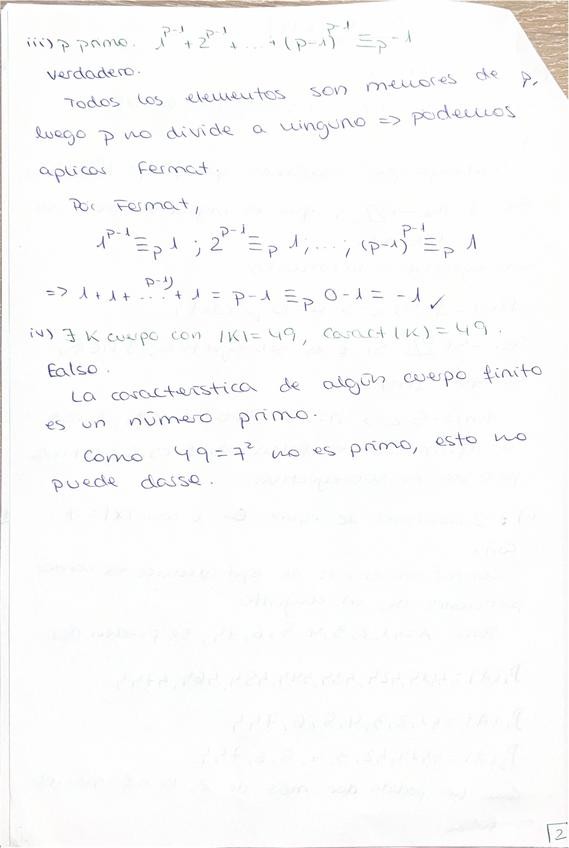 iii) p primo. 1^{p-1} + 2^{p-1} + ... + (p-1)^{p-1} ≡_p -1
verdadero.
Todos los elementos son menores de p,
luego p no divide a ninguno => podemos
aplicar Fermat.
Por Fermat,
1^{p-1} ≡_p 1 ; 2^{p-1} ≡_p 1, ... ; (p-1)^{p-1} ≡_p 1
=> 1 + 1 + ...^{p-1)} + 1 = p-1 ≡_p 0-1 = -1 ✓
iv) ∃ K cuerpo con |K| = 49, caract(K) = 49.
Falso.
La característica de algún cuerpo finito
es un número primo.
Como 49 = 7² no es primo, esto no
puede darse.
2